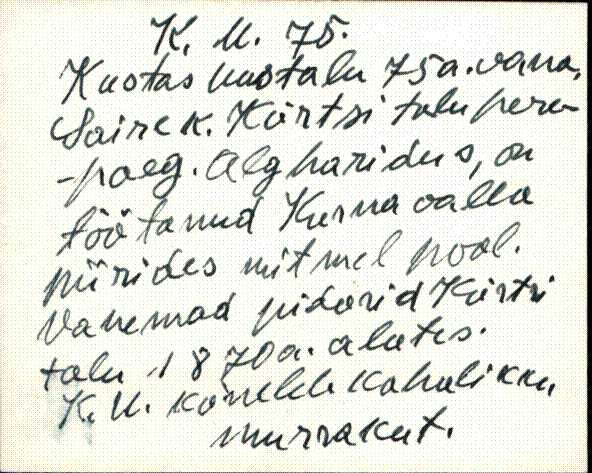 K. U. 75.
Kustas Uustalu 75 a. vana,
Saire k. Kärtsi talu pere-
-poeg. Algharidus, on
töötanud Kurna valla
piirides mitmel pool.
Vanemad pidasid Kärtsi
talu 1870 a. alates.
K. U. kõneleb kohalikku
murrakut.